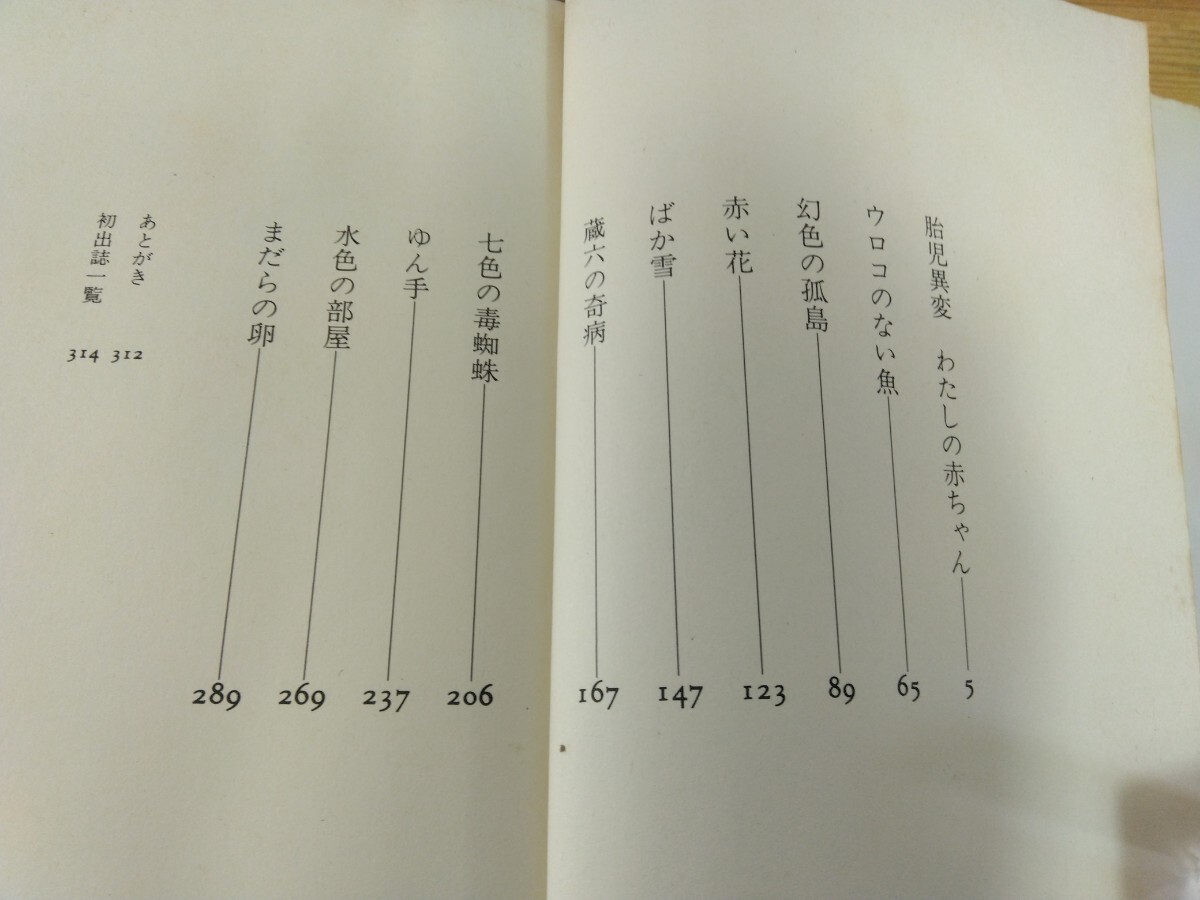 胎児異変 わたしの赤ちゃん 5
ウロコのない魚 65
幻色の孤島 89
赤い花 123
ばか雪 147
蔵六の奇病 167
七色の毒蜘蛛 206
ゆん手 237
水色の部屋 269
まだらの卵 289
あとがき 312
初出誌一覧 314